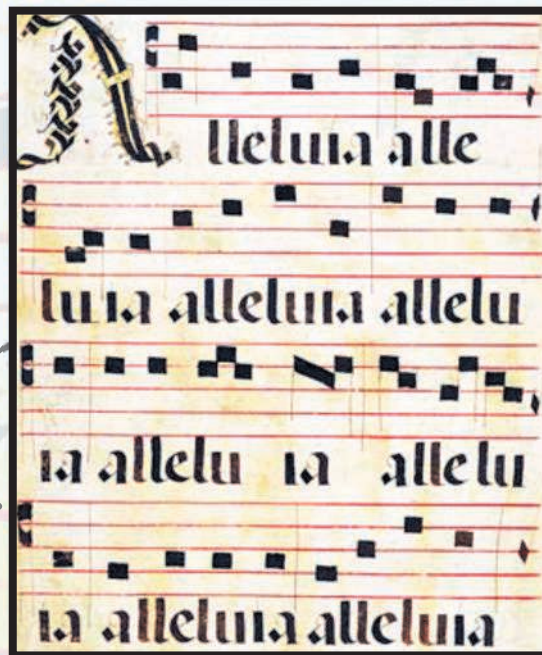 Alleluia alle
luia alleluia allelu
ia allelu ia allelu
ia alleluia alleluia